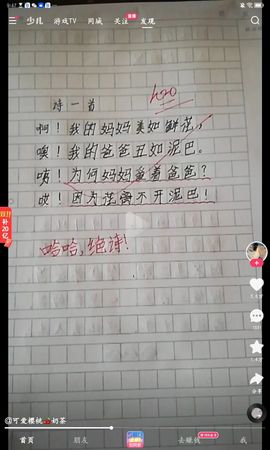 少儿 游戏TV 同城 关注 发现
诗一首
啊！我的妈妈美如鲜花，
唉！我的爸爸丑如泥巴。
咦！为何妈妈爱着爸爸？
哎！因为花离不开泥巴！
哈哈，绝诗！
补20亿
分享
@可爱樱桃🍒奶茶
首页 朋友 去赚钱 我